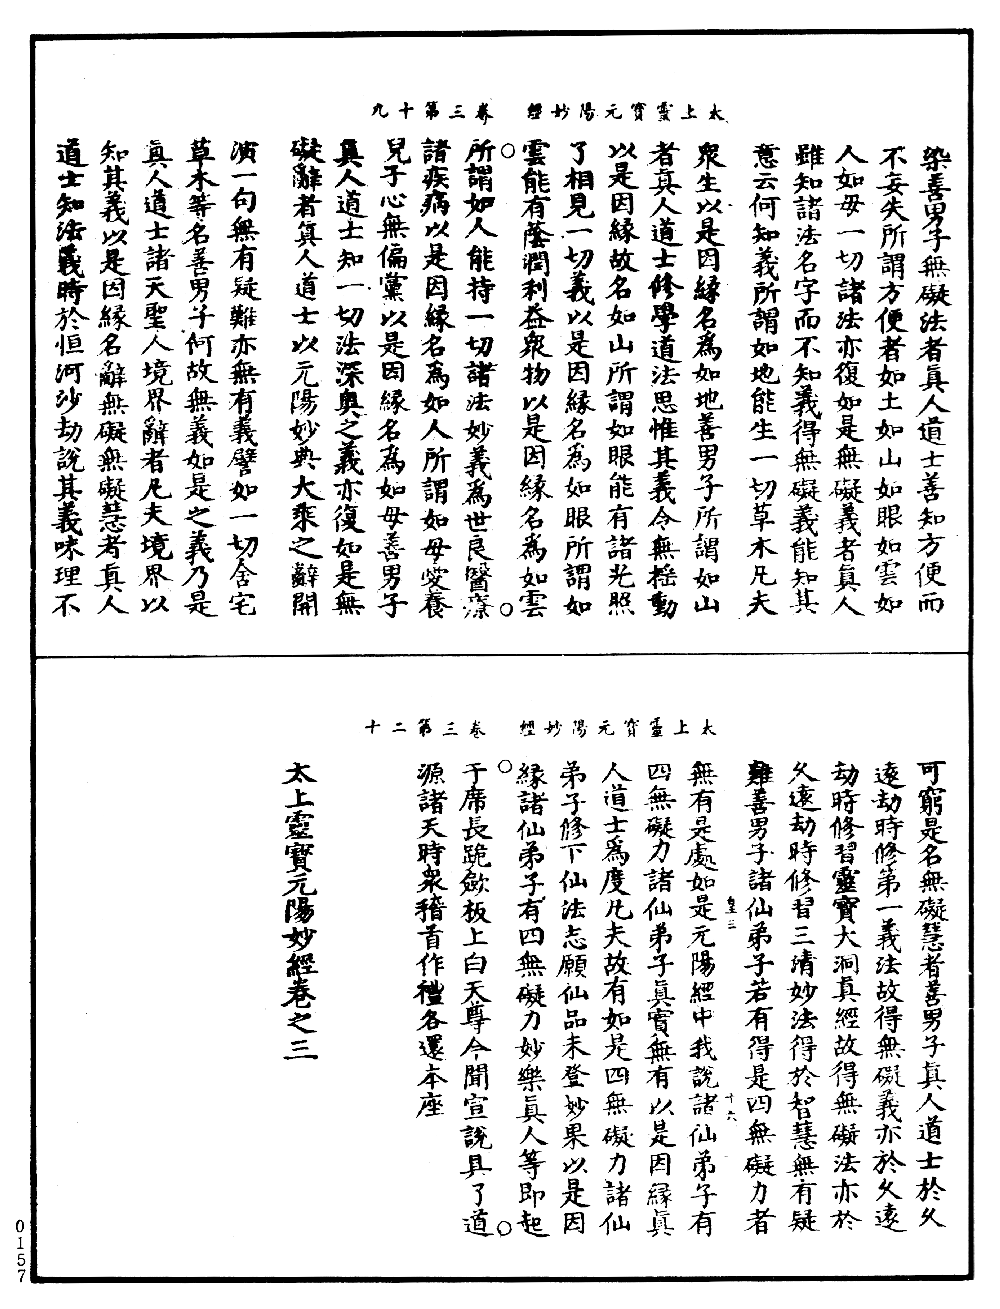 太上靈寶元陽妙經　卷三第十九
染善男子無礙法者真人道士善知方便而
不妄失所謂方便者如土如山如眼如雲如
人如母一切諸法亦復如是無礙義者真人
雖知諸法名字而不知義得無礙義能知其
意云何知義所謂如地能生一切草木凡夫
眾生以是因緣名為如地善男子所謂如山
者真人道士修學道法思惟其義令無揺動
以是因緣故名如山所謂如眼能有諸光照
了相見一切義以是因緣名為如眼所謂如
雲能有蔭潤利益眾物以是因緣名為如雲
所謂如人能持一切諸法妙義為世良醫療
諸疾病以是因緣名為如人所謂如母愛養
兒子心無偏黨以是因緣名為如母善男子
真人道士知一切法深奧之義亦復如是無
礙辭者真人道士以元陽妙典大乘之辭開
演一句無有疑難亦無有義譬如一切舍宅
草木等名善男子何故無義如是之義乃是
真人道士諸天聖人境界辭者凡夫境界以
知其義以是因緣名辭無礙無礙慧者真人
道士知法義時於恒河沙劫說其義味理不
太上靈寶元陽妙經　卷三第二十
可窮是名無礙慧者善男子真人道士於久
遠劫時修第一義法故得無礙義亦於久遠
劫時修習靈寶大洞真經故得無礙法亦於
久遠劫時修習三清妙法得於智慧無有疑
難善男子諸仙弟子若有得是四無礙力者
無有是處如是元陽經中我說諸仙弟子有
四無礙力諸仙弟子真實無有以是因緣真
人道士為度凡夫故有如是四無礙力諸仙
弟子修下仙法志願仙品未登妙果以是因
緣諸仙弟子有四無礙力妙樂真人等即起
于席長跪斂板上白天尊今聞宣說具了道
源諸天時眾稽首作禮各還本座
太上靈寶元陽妙經卷之三
皇三
十六
0157